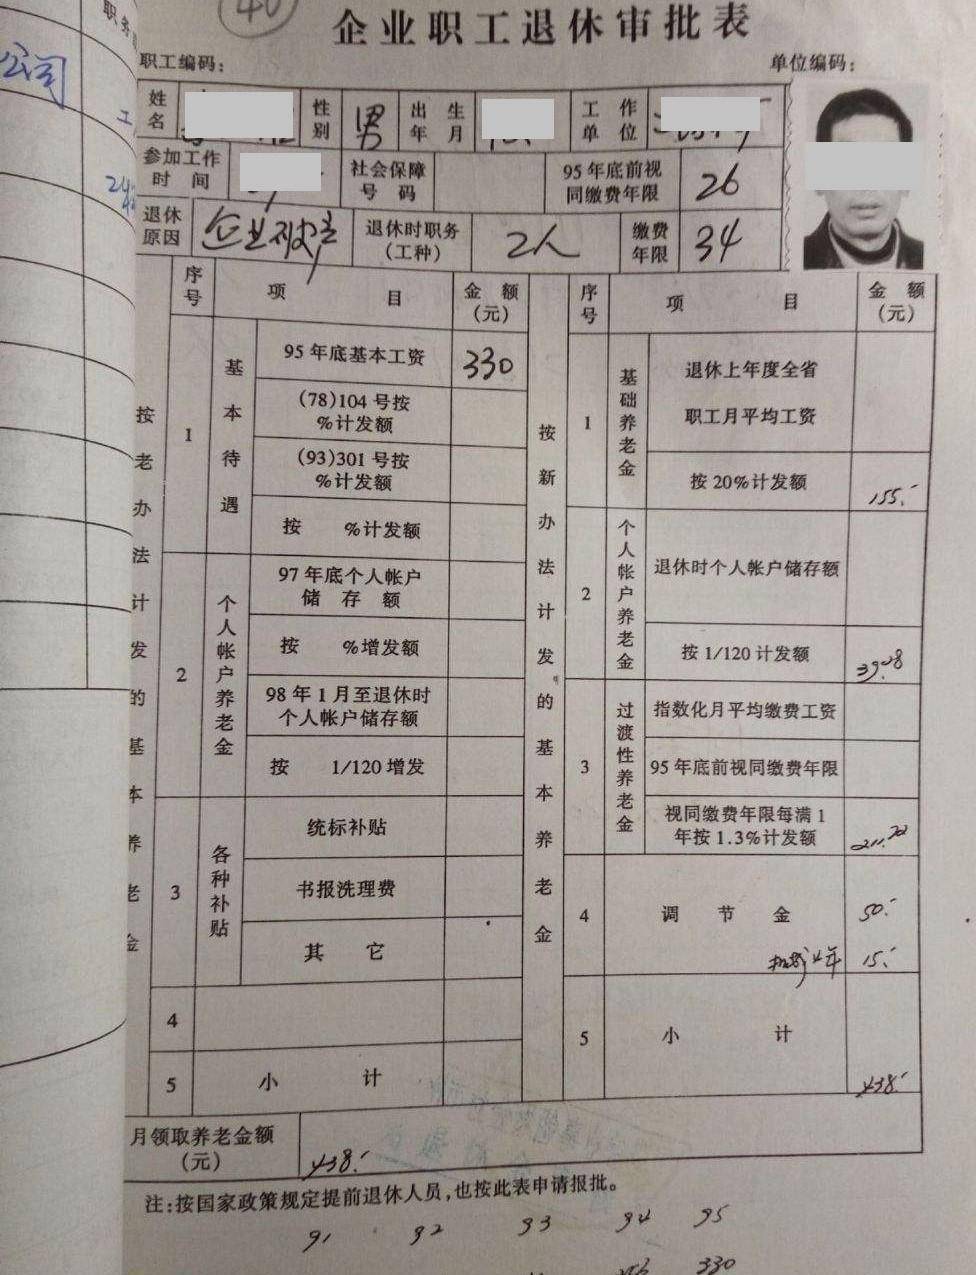 40
企业职工退休审批表
职工编码： 单位编码：
姓名 性别 男 出生年月 工作单位
参加工作时间 社会保障号码 95年底前视同缴费年限 26
退休原因 企业破产 退休时职务（工种） 工人 缴费年限 34
序号 项目 金额（元） 序号 项目 金额（元）
按老办法计发的基本养老金
1 基本待遇
95年底基本工资 330
(78)104号按 %计发额
(93)301号按 %计发额
按 %计发额
2 个人帐户养老金
97年底个人帐户储存额
按 %增发额
98年1月至退休时个人帐户储存额
按 1/120增发
3 各种补贴
统标补贴
书报洗理费
其它
4
5 小计
按新办法计发的基本养老金
1 基础养老金
退休上年度全省职工月平均工资
按20%计发额 155.-
2 个人帐户养老金
退休时个人帐户储存额
按1/120计发额
3 过渡性养老金
指数化月平均缴费工资
95年底前视同缴费年限
视同缴费年限每满1年按1.3%计发额
4 调节金 50.-
15.-
5 小计 438.-
月领取养老金额（元） 438.-
注：按国家政策规定提前退休人员，也按此表申请报批。
91 92 93 94 95
330
公司
职务